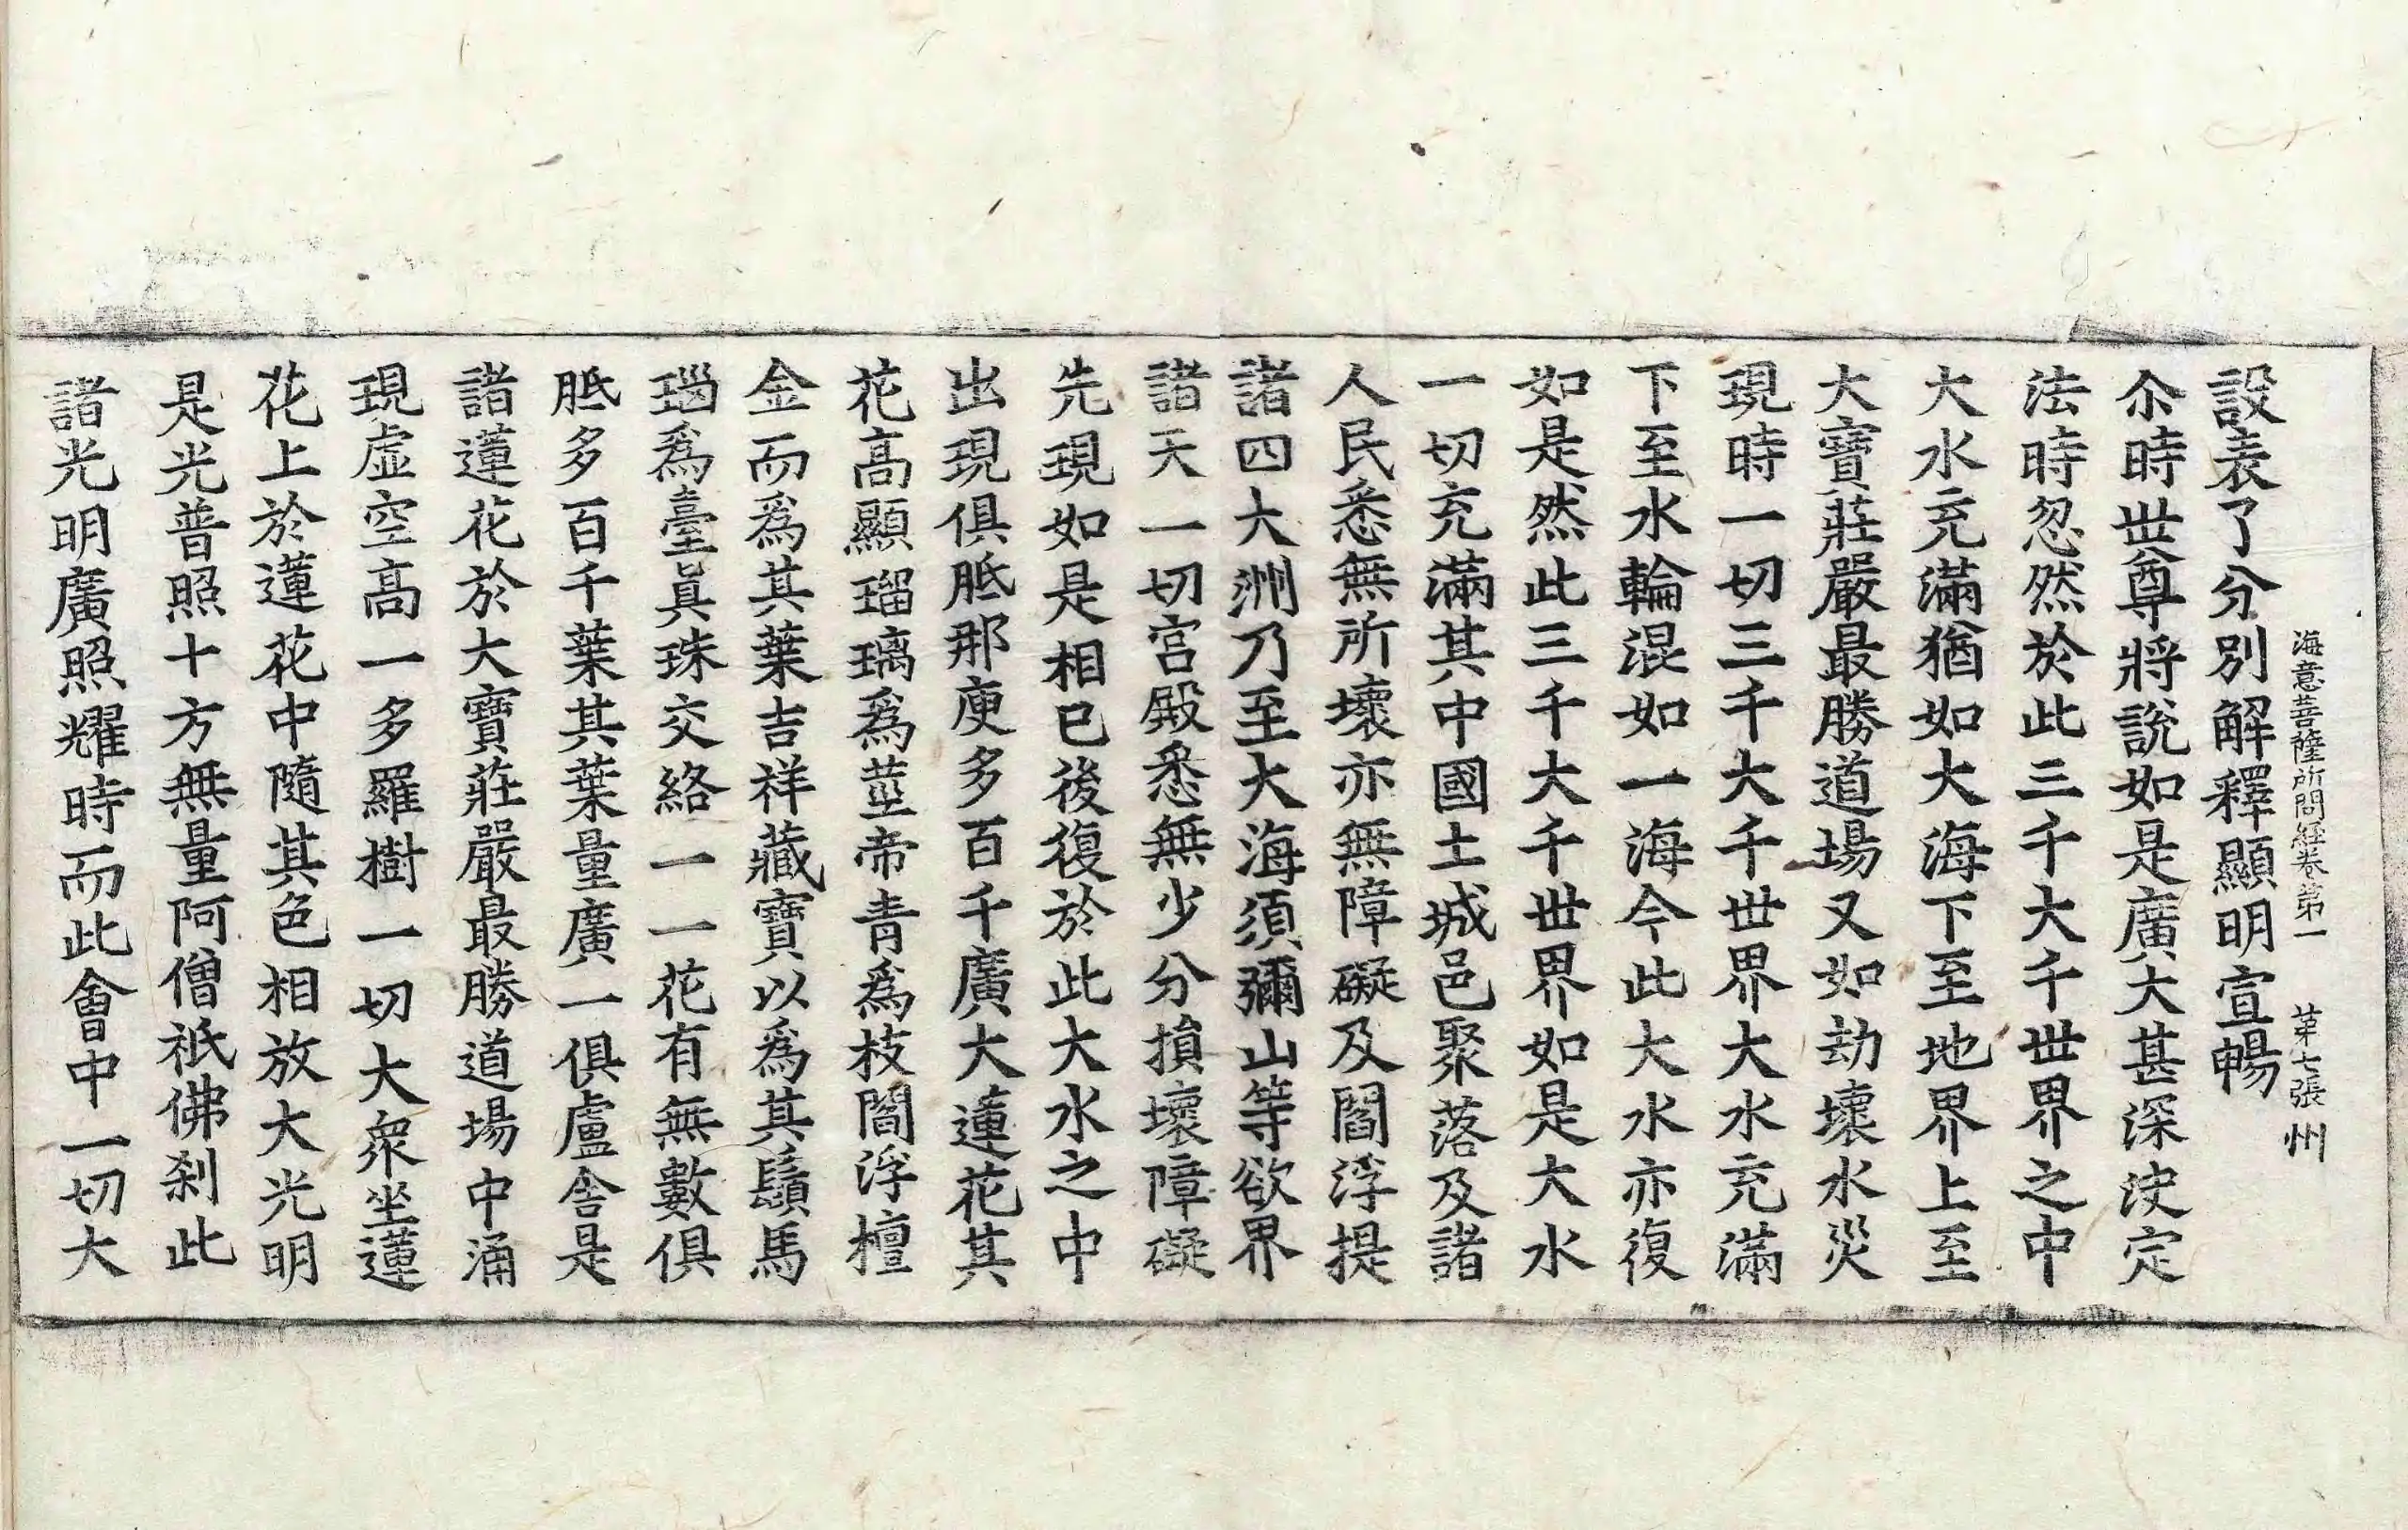 海意菩薩所問經卷第一 第七張 州
設表了分別解釋顯明宣暢
尒時世尊將說如是廣大甚深決定
法時忽然於此三千大千世界之中
大水充滿猶如大海下至地界上至
大寶莊嚴最勝道場又如劫壞水災
現時一切三千大千世界大水充滿
下至水輪混如一海今此大水亦復
如是然此三千大千世界如是大水
一切充滿其中國土城邑聚落及諸
人民悉無所壞亦無障礙及閻浮提
諸四大洲乃至大海須彌山等欲界
諸天一切宮殿悉無少分損壞障礙
先現如是相已後復於此大水之中
出現俱胝那庾多百千廣大蓮花其
花高顯瑠璃爲莖帝青爲枝閻浮檀
金而爲其葉吉祥藏寶以爲其鬚馬
瑙爲臺眞珠交絡一一花有無數俱
胝多百千葉其葉量廣一俱盧舍是
諸蓮花於大寶莊嚴最勝道場中涌
現虛空高一多羅樹一切大衆坐蓮
花上於蓮花中隨其色相放大光明
是光普照十方無量阿僧祇佛刹此
諸光明廣照耀時而此會中一切大